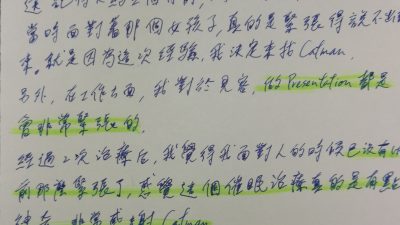 當時面對著那個女孩子,真的是緊張得說不出
來。就是因為這次經驗,我決定來找 Catman.
另外,在工作方面,我對於見客,做 Presentation 都是
會非常緊張的.
經過 2 次治療后,我覺得我面對人的時候已沒有
前那樣緊張了,感覺這個催眠治療真的是有點
非常感謝 Catman